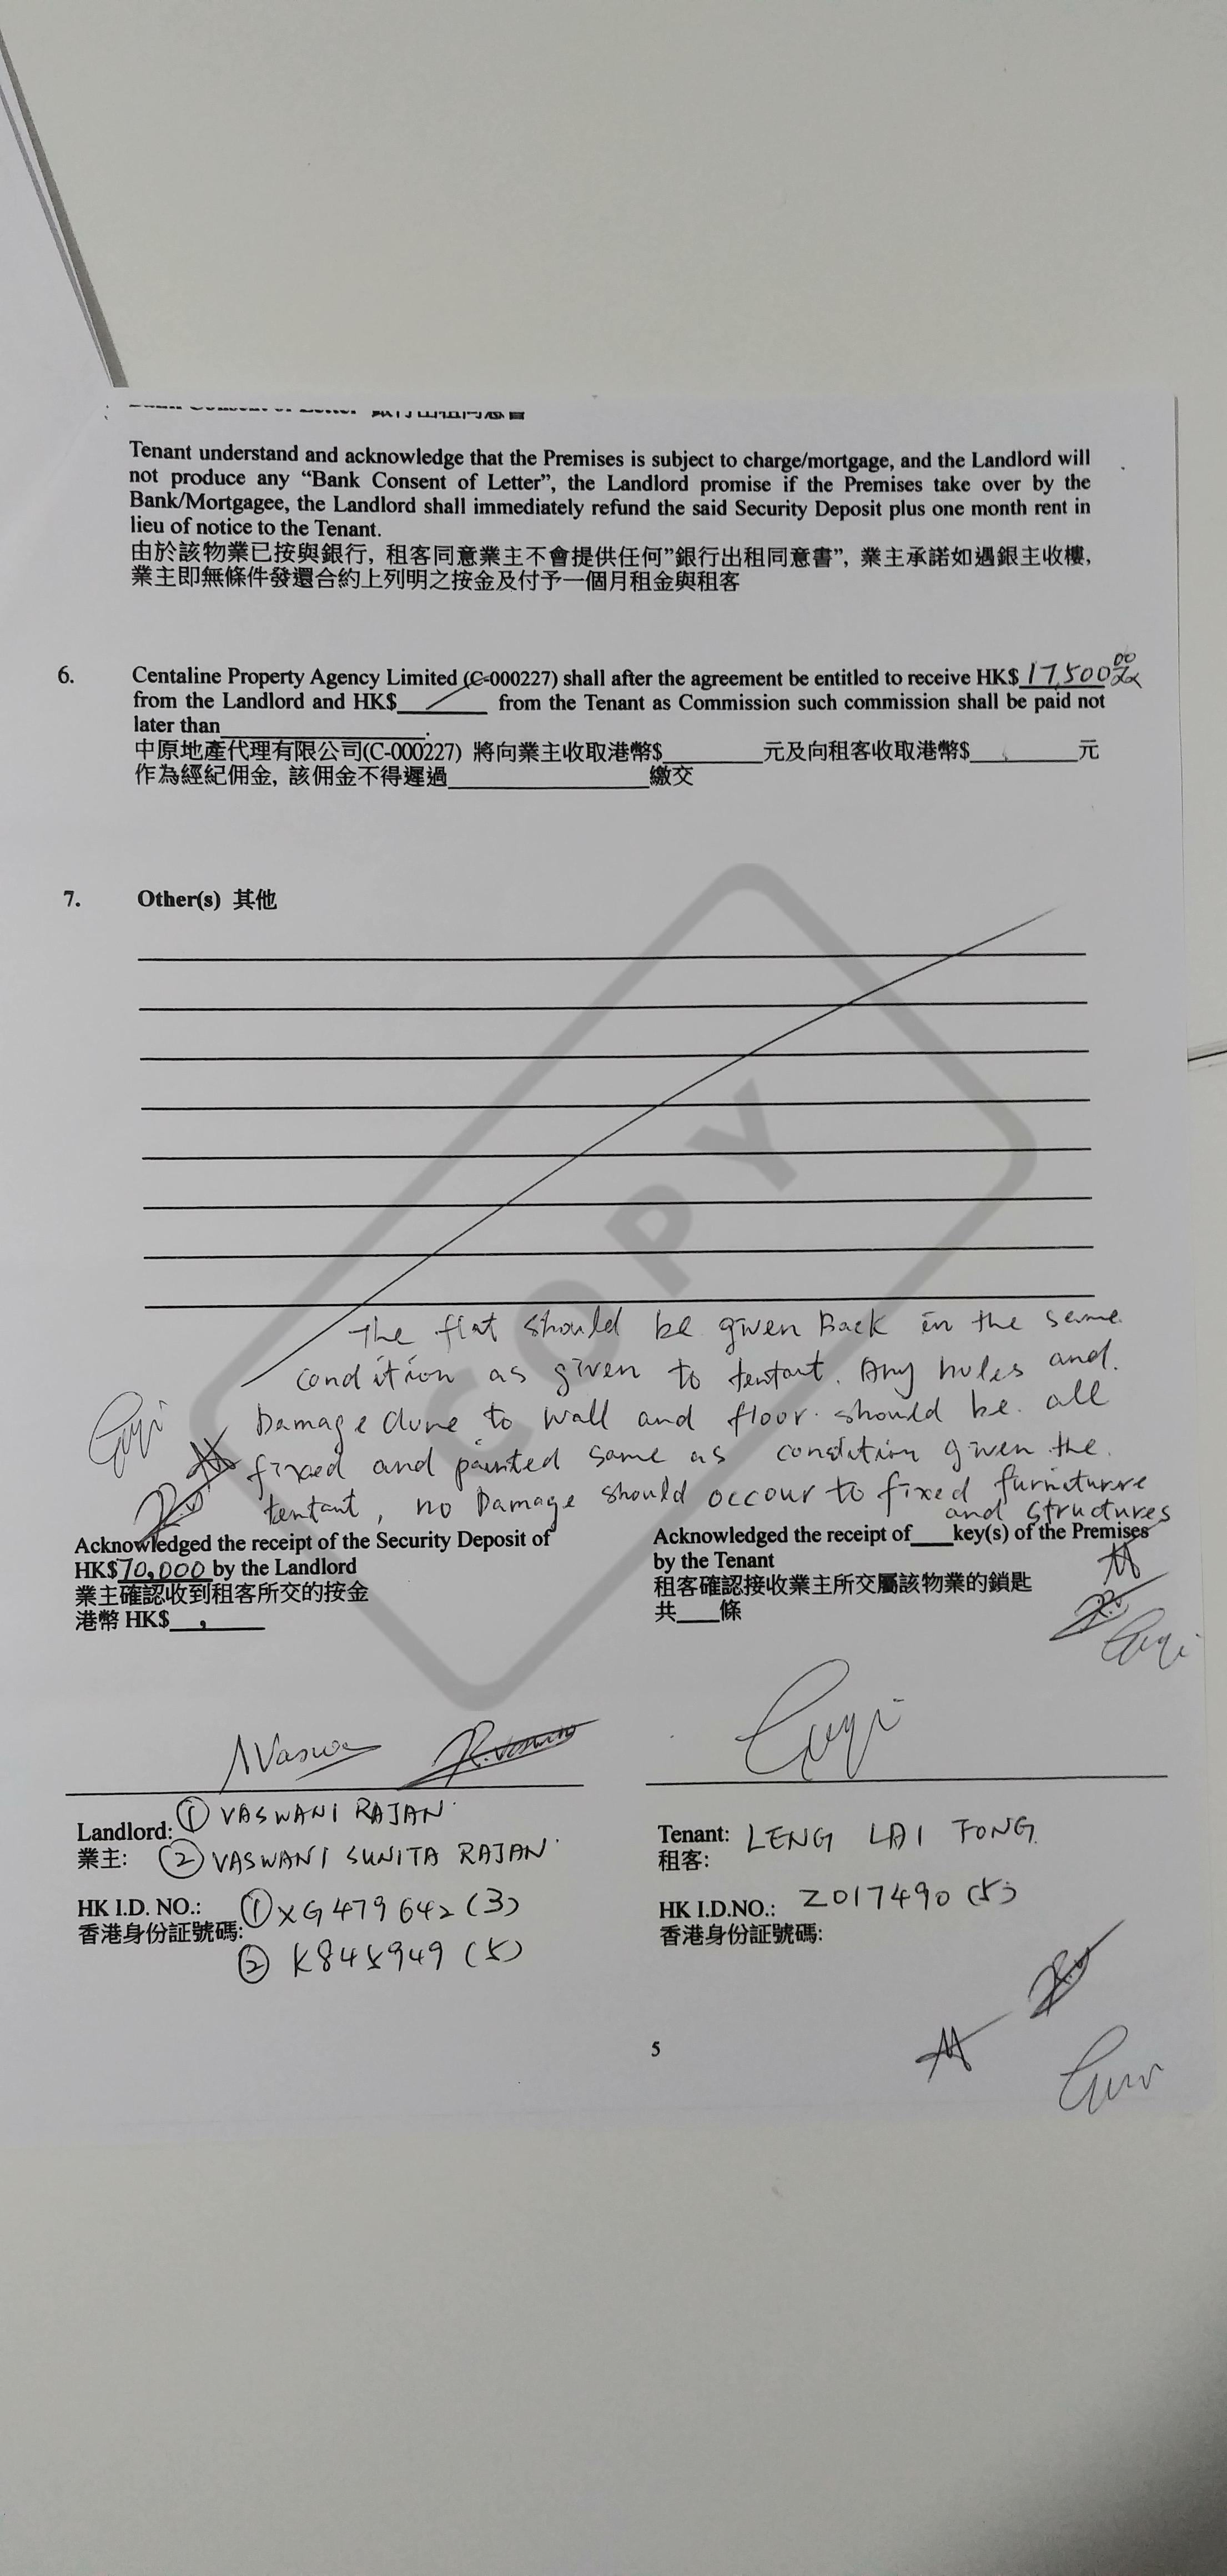 銀行出租同意書
Tenant understand and acknowledge that the Premises is subject to charge/mortgage, and the Landlord will
not produce any “Bank Consent of Letter”, the Landlord promise if the Premises take over by the
Bank/Mortgagee, the Landlord shall immediately refund the said Security Deposit plus one month rent in
lieu of notice to the Tenant.
由於該物業已按與銀行, 租客同意業主不會提供任何”銀行出租同意書”, 業主承諾如遇銀主收樓,
業主即無條件發還合約上列明之按金及付予一個月租金與租客
6. Centaline Property Agency Limited (C-000227) shall after the agreement be entitled to receive HK$ 17,500 00/xx
from the Landlord and HK$ from the Tenant as Commission such commission shall be paid not
later than .
中原地產代理有限公司(C-000227) 將向業主收取港幣$ 元及向租客收取港幣$ 元
作為經紀佣金, 該佣金不得遲過 繳交
7. Other(s) 其他
COPY
The flat should be given Back in the same
condition as given to tentant. Any holes and
Damage done to wall and floor should be all
fixed and painted same as condition given the
tentant, no Damage should occour to fixed furniturre
and structures
Acknowledged the receipt of the Security Deposit of
HK$ 70,000 by the Landlord
業主確認收到租客所交的按金
港幣 HK$
Acknowledged the receipt of key(s) of the Premises
by the Tenant
租客確認接收業主所交屬該物業的鎖匙
共 條
Landlord: ① VASWANI RAJAN
業主: ② VASWANI SUNITA RAJAN
HK I.D. NO.: ① XG479642(3)
香港身份証號碼:
② K845949(5)
Tenant: LENG LAI FONG
租客:
HK I.D.NO.: Z017490(5)
香港身份証號碼:
5